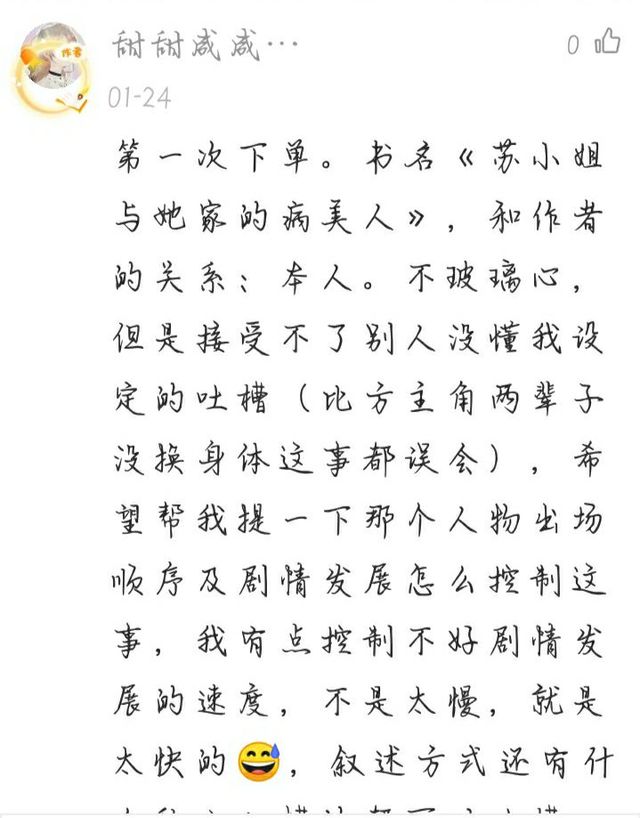 甜甜咸咸…
作者
0
01-24
第一次下单。书名《苏小姐
与她家的病美人》，和作者
的关系：本人。不玻璃心，
但是接受不了别人没懂我设
定的吐槽（比方主角两辈子
没换身体这事都误会），希
望帮我提一下那个人物出场
顺序及剧情发展怎么控制这
事，我有点控制不好剧情发
展的速度，不是太慢，就是
太快的😅，叙述方式还有什